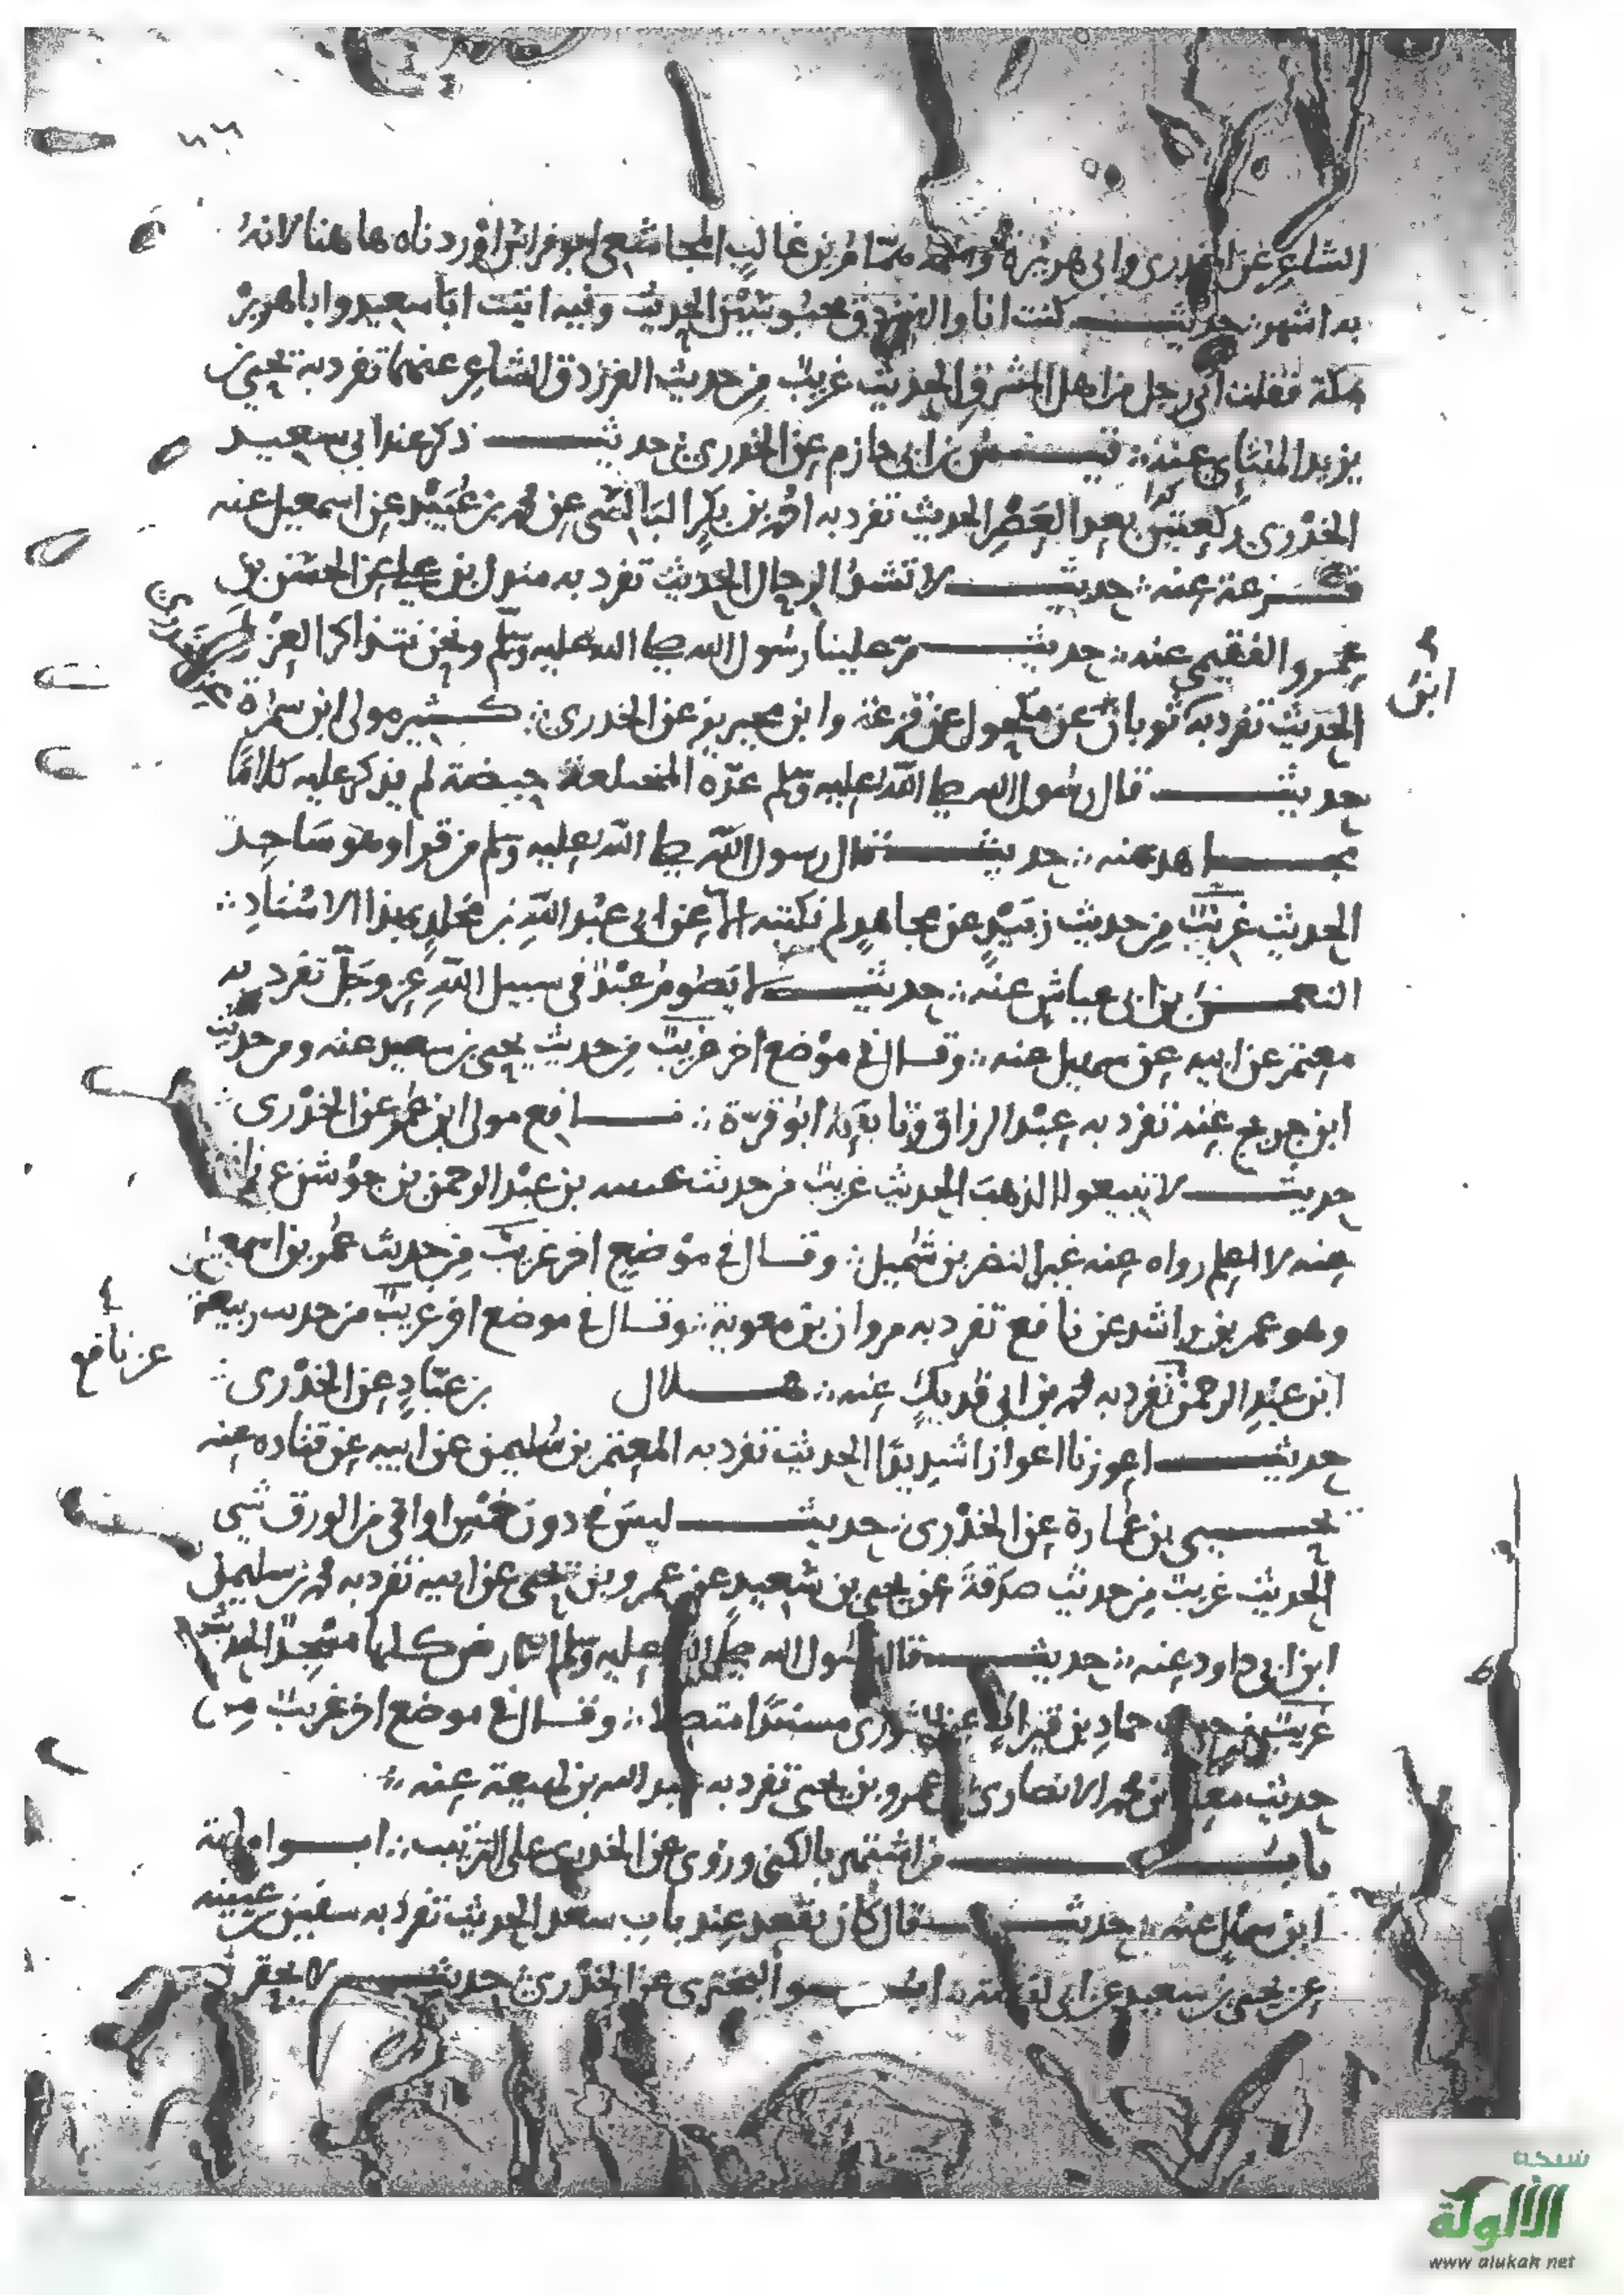 الشاعر عن الخدري وابي هريرة همام بن غالب المجاشعي ابو فراس اوردناه هاهنا لانه
به اشهر حديث كنت انا والفرزدق محبوسين الحديث وفيه اتيت ابا سعيد وابا هريرة
بمكة فقلت اني رجل من اهل المشرق الحديث غريب من حديث الفرزدق الشاعر عنهما تفرد به يحيى بن
يزيد الهنائي عنه قيس بن ابي حازم عن الخدري حديث ذكر عند ابي سعيد
الخدري ركعتين بعد العصر الحديث تفرد به احمد بن بكر البالسي عن محمد بن عبيد عن اسمعيل عنه
قزعة عنه حديث لا تشد الرحال الحديث تفرد به مندل بن علي عن الحسن بن
عمرو الفقيمي عنه حديث مر علينا رسول الله صلى الله عليه وسلم ونحن نتذاكر العزل
عن الخدري
الحديث تفرد به ثوبان عن مكحول عن قزعة وابن محيريز عن الخدري كثير مولى ابن سمرة
ابن
حديث قال رسول الله صلى الله عليه وسلم عدة المختلعة حيضة لم يذكر عليه كلاما
مجاهد عنه حديث قال رسول الله صلى الله عليه وسلم من قرا وهو ساجد
الحديث غريب من حديث زبيد عن مجاهد لم نكتبه الا عن ابي عبد الله بن مخلد بهذا الاسناد
النعمن بن ابي عياش عنه حديث لا يصوم عبد في سبيل الله عز وجل تفرد به
معتمر عن ابيه عن سهيل عنه وقال في موضع اخر غريب من حديث يحيى بن سعيد عنه ومن حديث
ابن جريج عنه تفرد به عبد الرزاق وتابعه ابو قرة نافع مولى ابن عمر عن الخدري
حديث لا تبيعوا الذهب الحديث غريب من حديث عيينه بن عبد الرحمن بن جوشن عن نافع
عنه لا اعلم رواه عنه غير النضر بن شميل وقال في موضع اخر غريب من حديث عمر بن اسمعيل
وهو عمر بن راشد عن نافع تفرد به مروان بن معوية وقال في موضع اخر غريب من حديث ربيعة
عن نافع
ابن عبد الرحمن تفرد به محمد بن ابي فديك عنه هلال بن عباد عن الخدري
حديث اعوزنا اعوازا شديدا الحديث تفرد به المعتمر بن سليمن عن ابيه عن قتاده عنه
يحيى بن عمارة عن الخدري حديث ليس في دون خمس اواقي من الورق شي
الحديث غريب من حديث صدقة عن يحيى بن سعيد عن عمرو بن يحيى عن ابيه تفرد به محمد بن سليمن
ابن ابي داود عنه حديث قال رسول الله صلى الله عليه وسلم الارض كلها مسجد الحديث
غريب من حديث حماد بن قيراط عن الثوري مسندا متصلا وقال في موضع اخر غريب من
حديث بن محمد الانصاري عن عمرو بن يحيى تفرد به عبد الله بن لهيعة عنه
باب من اشتهر بالكنى وروى عن الخدري على الترتيب ابو امامة
ابن سهل عنه حديث قال كان يقعد عند باب سعد الحديث تفرد به سفين بن عيينه
عن يحيى بن سعيد عن ابي امامة ابو البختري عن الخدري حديث لا يحقرن
شبكة
الألوكة
www alukah net